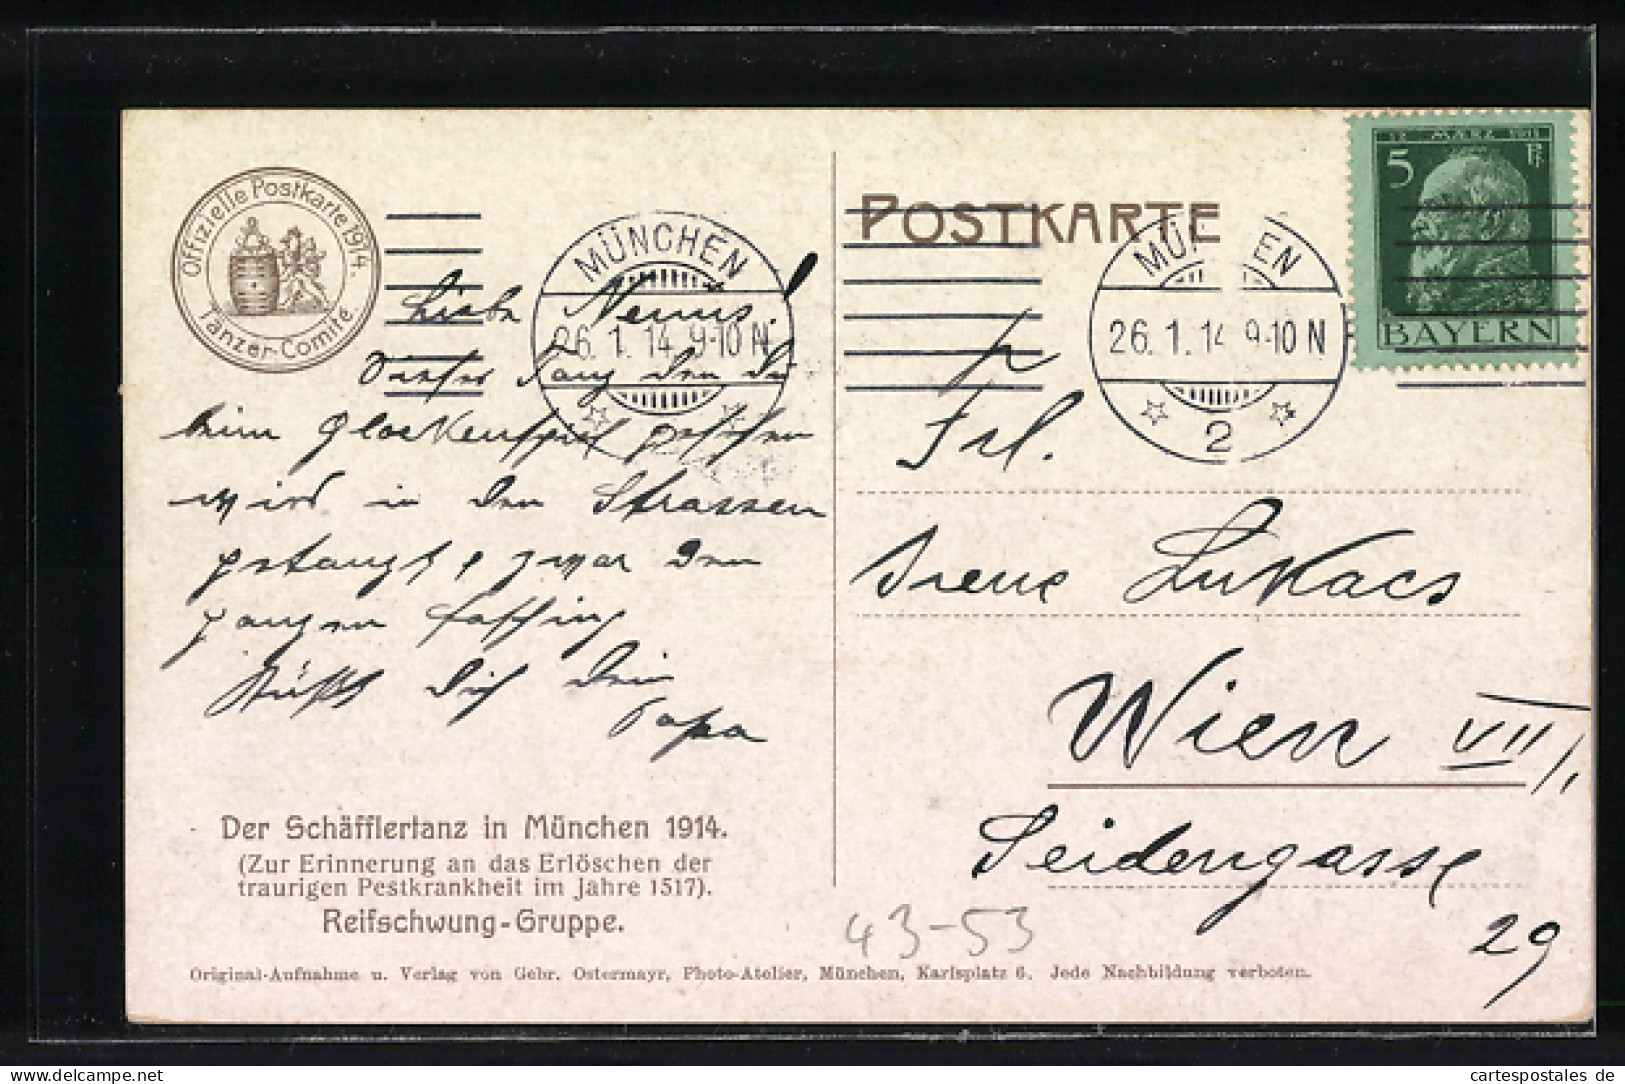 Offizielle Postkarte 1914.
Tänzer-Comité.
MÜNCHEN
26. 1. 14 9-10 N
POSTKARTE
MÜNCHEN
26. 1. 14 9-10 N
2
12 MÄRZ 1911
5 Pf.
BAYERN
Liebe
Dieser Tanz den Du
beim Glockenspiel gesehen
wird in den Strassen
getanzt, zwar den
ganzen Fasching
Küsst Dich Dein
Papa
Frl.
Irene Lukacs
Wien VII/
Seidengasse
29
Der Schäfflertanz in München 1914.
(Zur Erinnerung an das Erlöschen der
traurigen Pestkrankheit im Jahre 1517).
Reifschwung-Gruppe.
43-53
Original-Aufnahme u. Verlag von Gebr. Ostermayr, Photo-Atelier, München, Karlsplatz 6. Jede Nachbildung verboten.
delcampe.net
cartespostales de